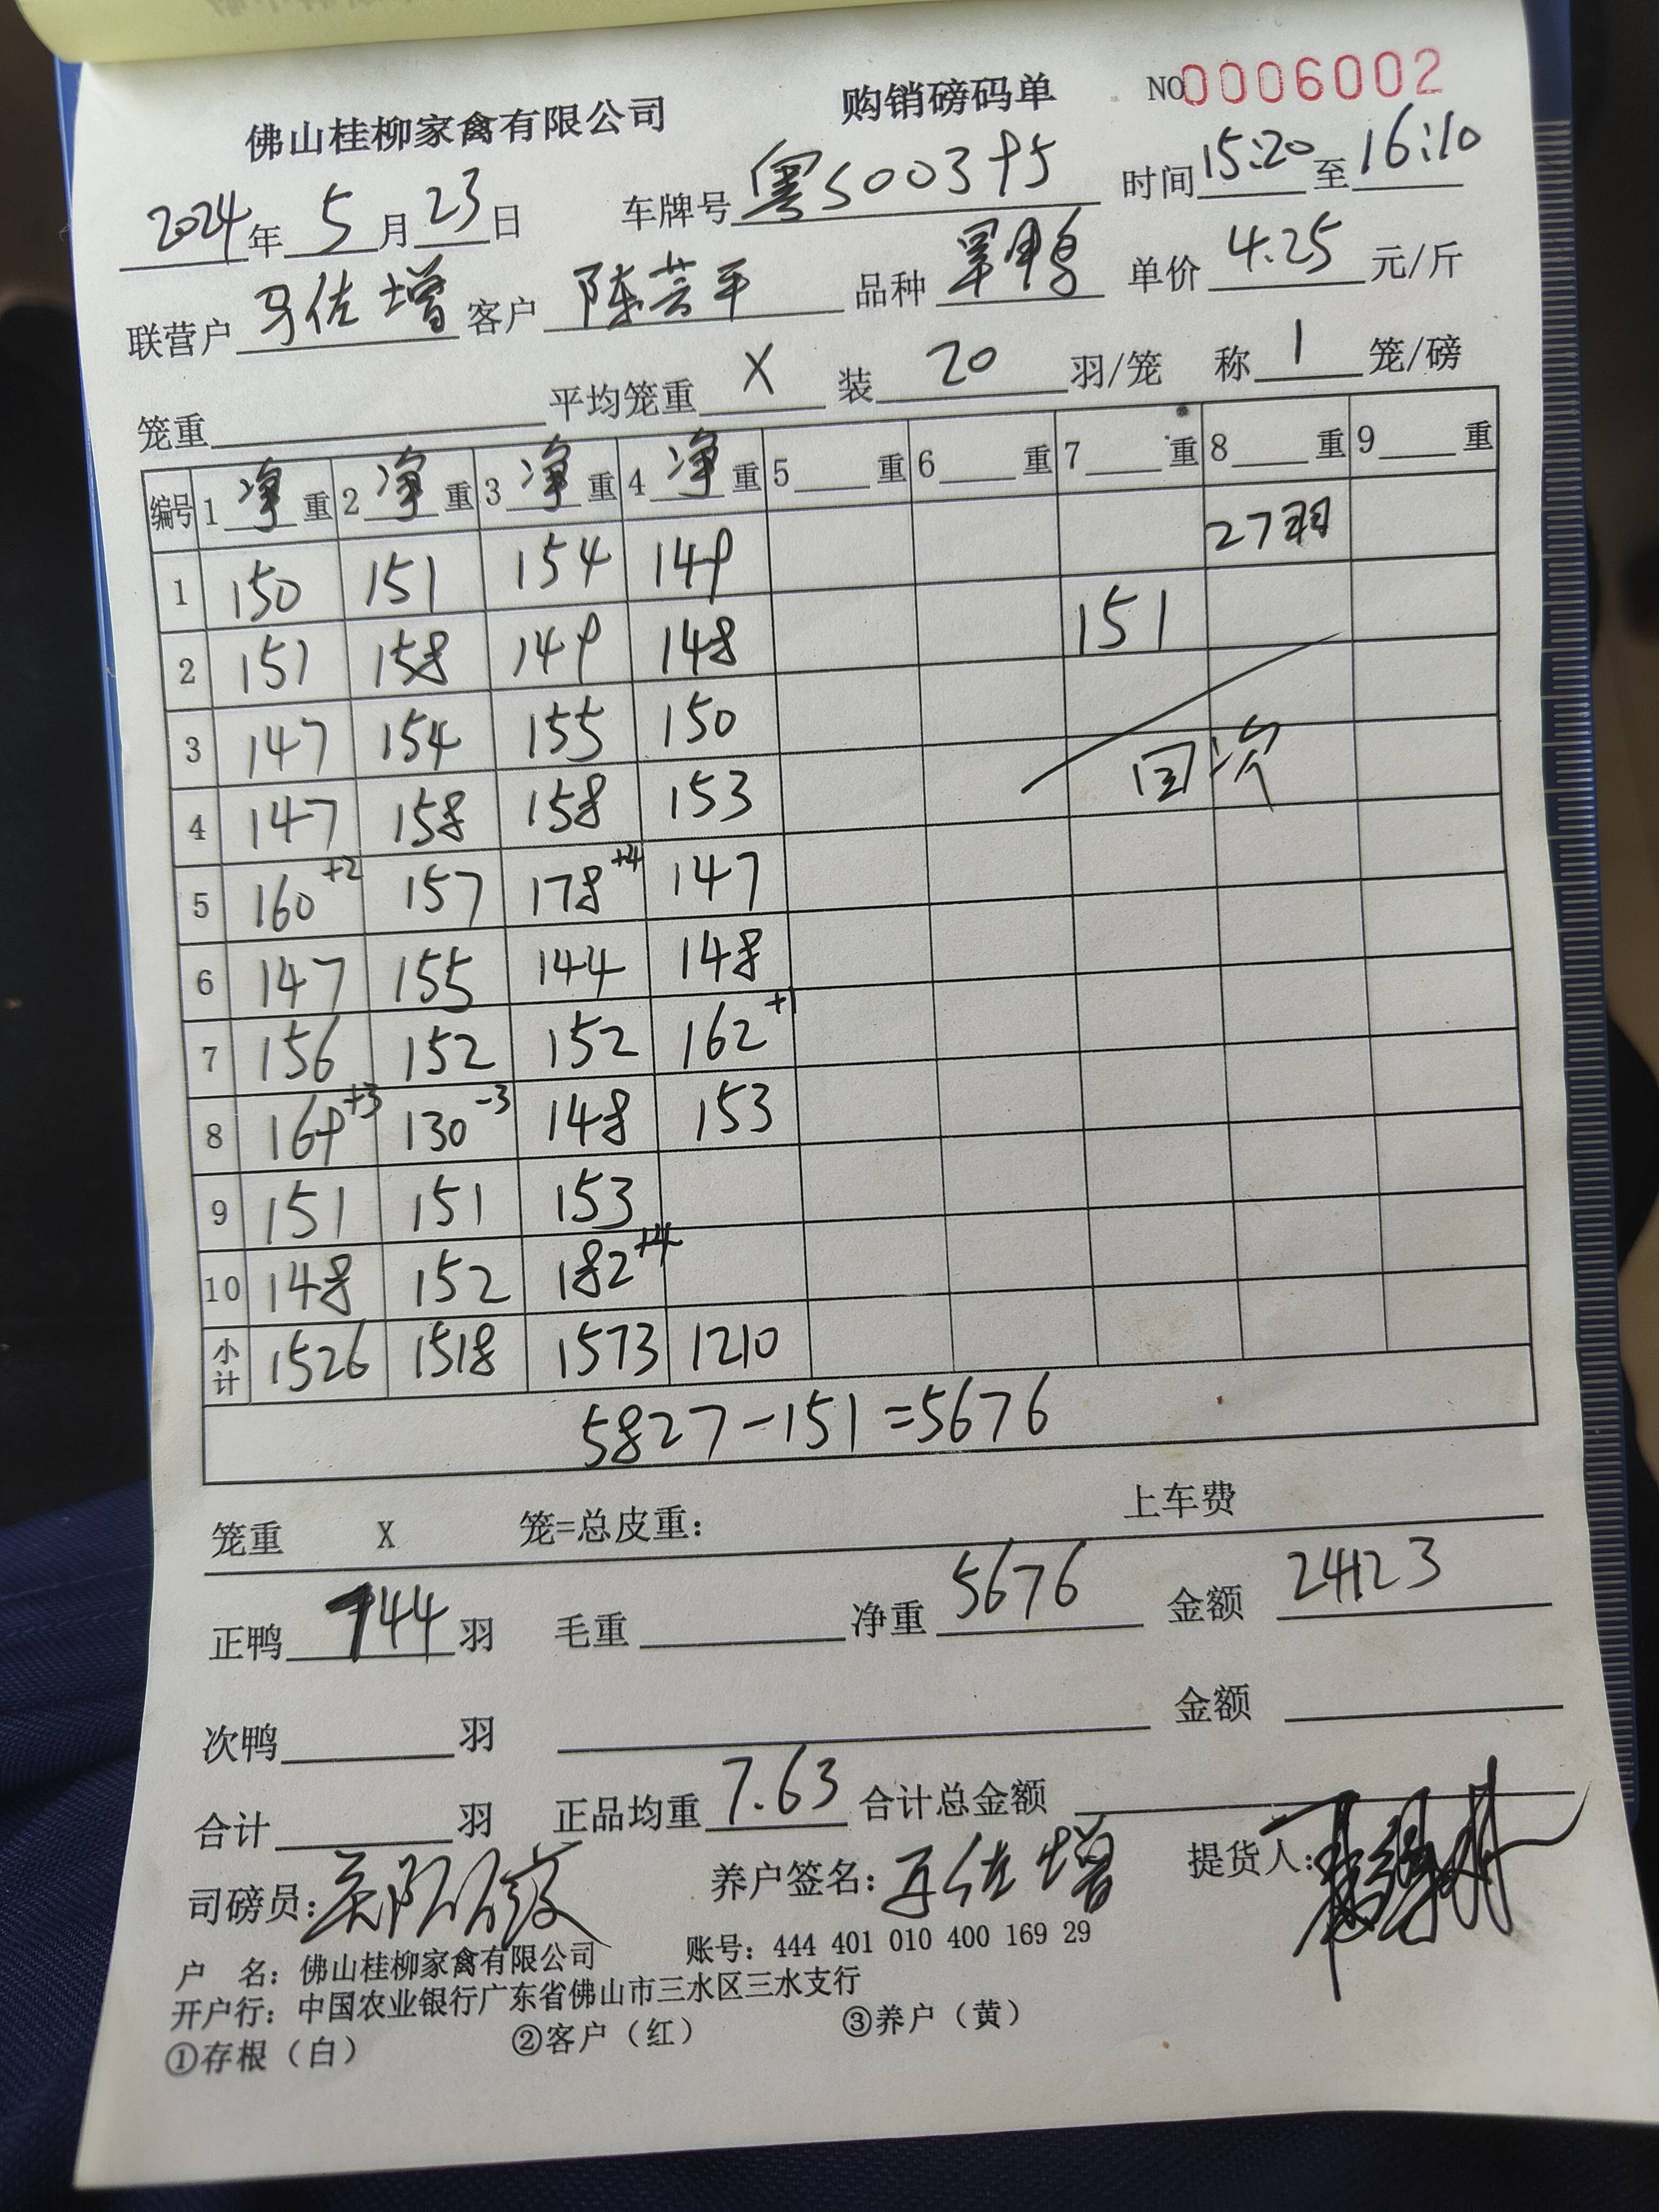 佛山桂柳家禽有限公司 购销磅码单 NO0006002
2024年5月23日 车牌号粤S003 时间15:20至16:10
联营户 马佐增 客户 陈芸平 品种 鸭 单价 4.25 元/斤
笼重 平均笼重 X 装 20 羽/笼 称 1 笼/磅
编号 1净重 2净重 3净重 4净重 5重 6重 7重 8重 9重
1 150 151 154 149 27羽
2 151 158 149 148 151
3 147 154 155 150
4 147 158 158 153 回次
5 160+2 157 178+4 147
6 147 155 144 148
7 156 152 152 162+1
8 169+3 130-3 148 153
9 151 151 153
10 148 152 182+4
小计 1526 1518 1573 1210
5827-151=5676
笼重 X 笼=总皮重: 上车费
正鸭 744 羽 毛重 净重 5676 金额 24123
次鸭 羽 金额
合计 羽 正品均重 7.63 合计总金额
司磅员: 养户签名: 马佐增 提货人:
户 名: 佛山桂柳家禽有限公司 账号: 444 401 010 400 169 29
开户行: 中国农业银行广东省佛山市三水区三水支行
①存根（白） ②客户（红） ③养户（黄）